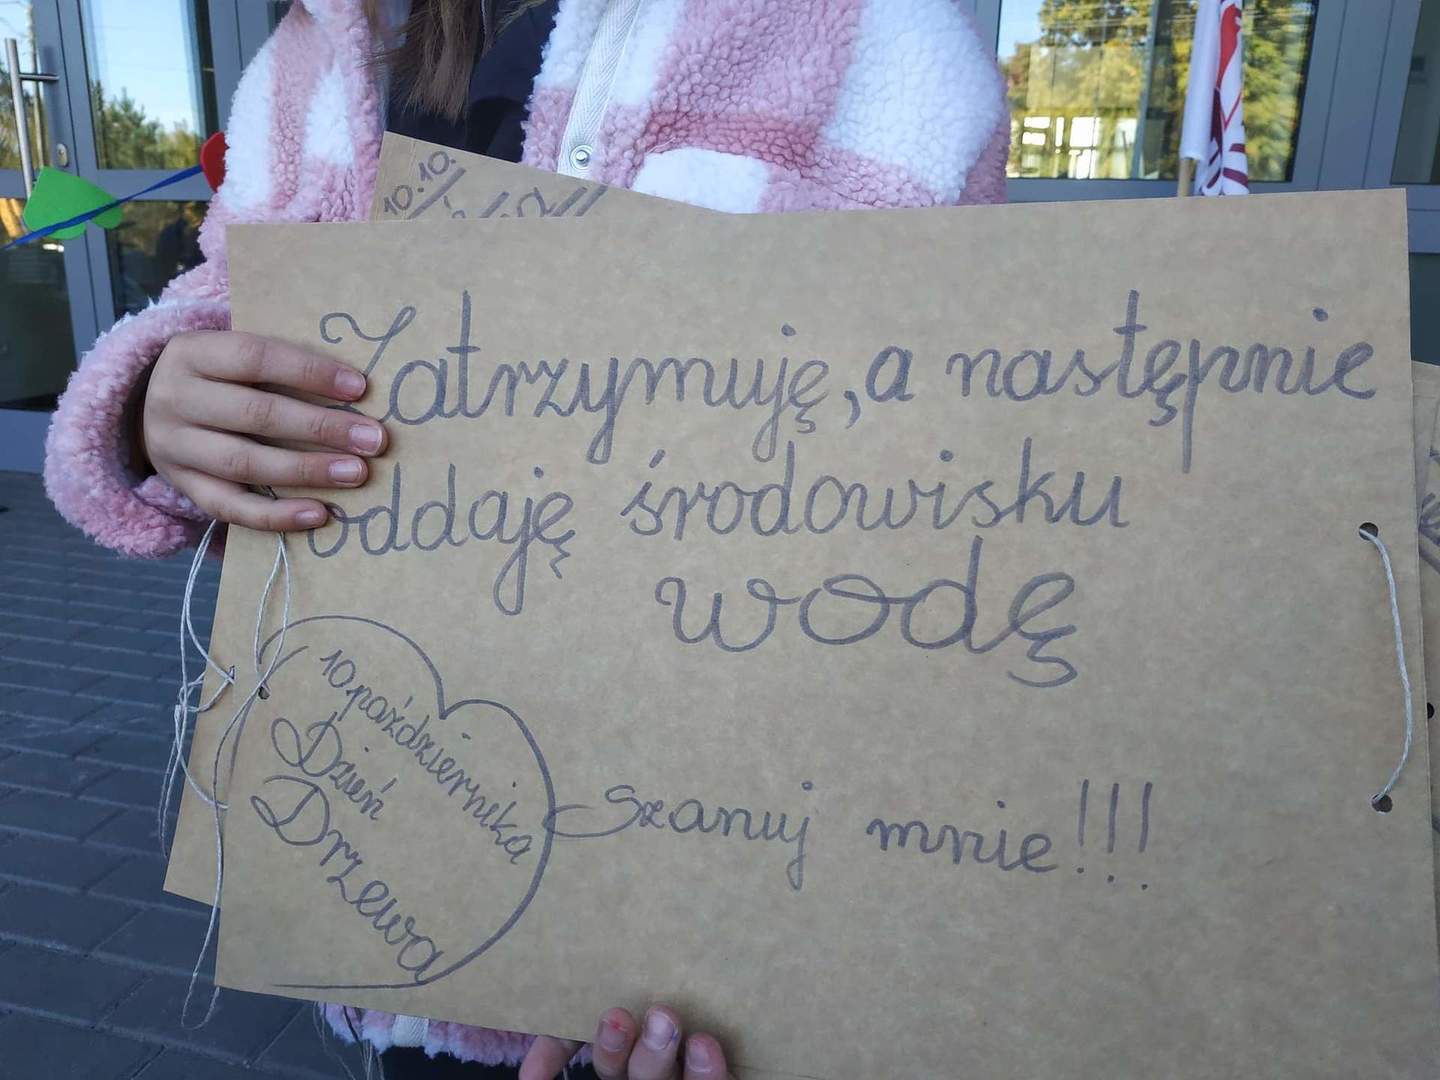 10.10.
Zatrzymuję, a następnie
oddaję środowisku
wodę
10 października
Dzień
Drzewa
Szanuj mnie!!!